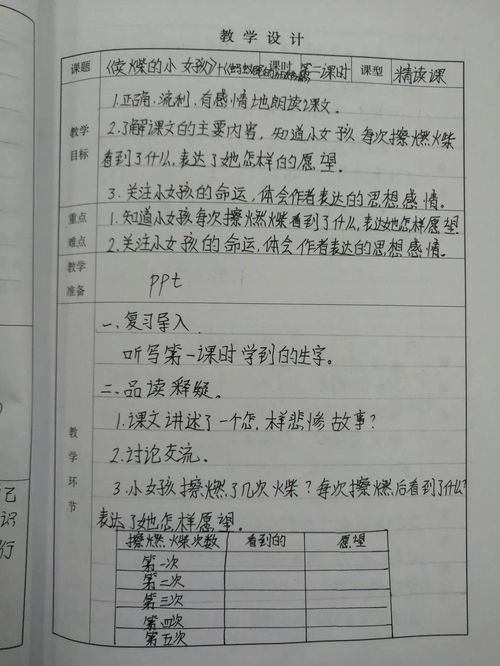 教学设计
课题 《卖火柴的小女孩》+《 课时 第二课时 课型 精读课
1.正确、流利、有感情地朗读课文。
教学目标 2.了解课文的主要内容，知道小女孩每次擦燃火柴
看到了什么，表达了她怎样的愿望。
3.关注小女孩的命运，体会作者表达的思想感情。
重点 1.知道小女孩每次擦燃火柴看到了什么，表达她怎样愿望
难点 2.关注小女孩的命运，体会作者表达的思想感情。
教学准备 ppt
一、复习导入
听写第一课时学到的生字。
教学环节 二、品读释疑。
1.课文讲述了一个怎样悲惨故事？
2.讨论交流。
3.小女孩擦燃了几次火柴？每次擦燃后看到了什么？
表达了她怎样愿望。
擦燃火柴次数 看到的 愿望
第一次
第二次
第三次
第四次
第五次
己
识
行